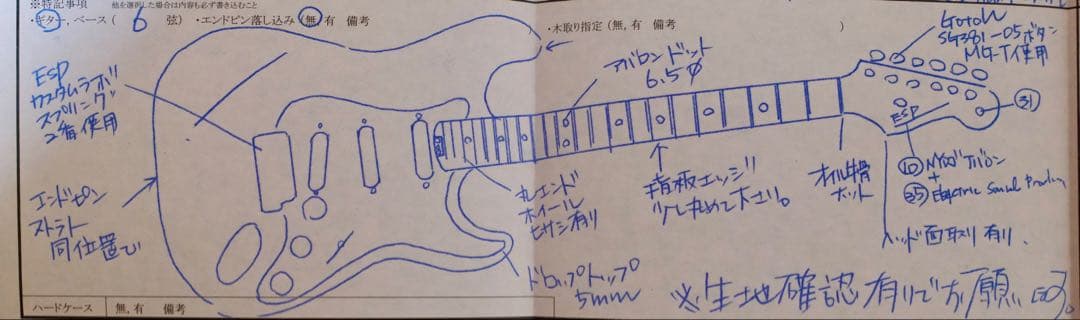 ※特記事項 他を選択した場合は内容も必ず書き込むこと
・ギター, ベース ( 6 弦) ・エンドピン落し込み (無, 有 備考
・木取り指定 (無, 有 備考 )
GOTOH
SG381-05ボタン
MG-T使用
ESP
カスタムラボ
スプリング
2番使用
アバロンドット
6.5φ
ESP
31
エンドピン
ストラト
同位置で
丸エンド
ホイール
ヒサシ有り
指板エッジ
少し丸めて下さい。
オイル牛骨
ナット
⑩ アバロン
+
㉟ Electric Sound
ヘッド面取り有り.
ドロップトップ
5mm
※生地確認有りでお願い
ハードケース 無, 有 備考